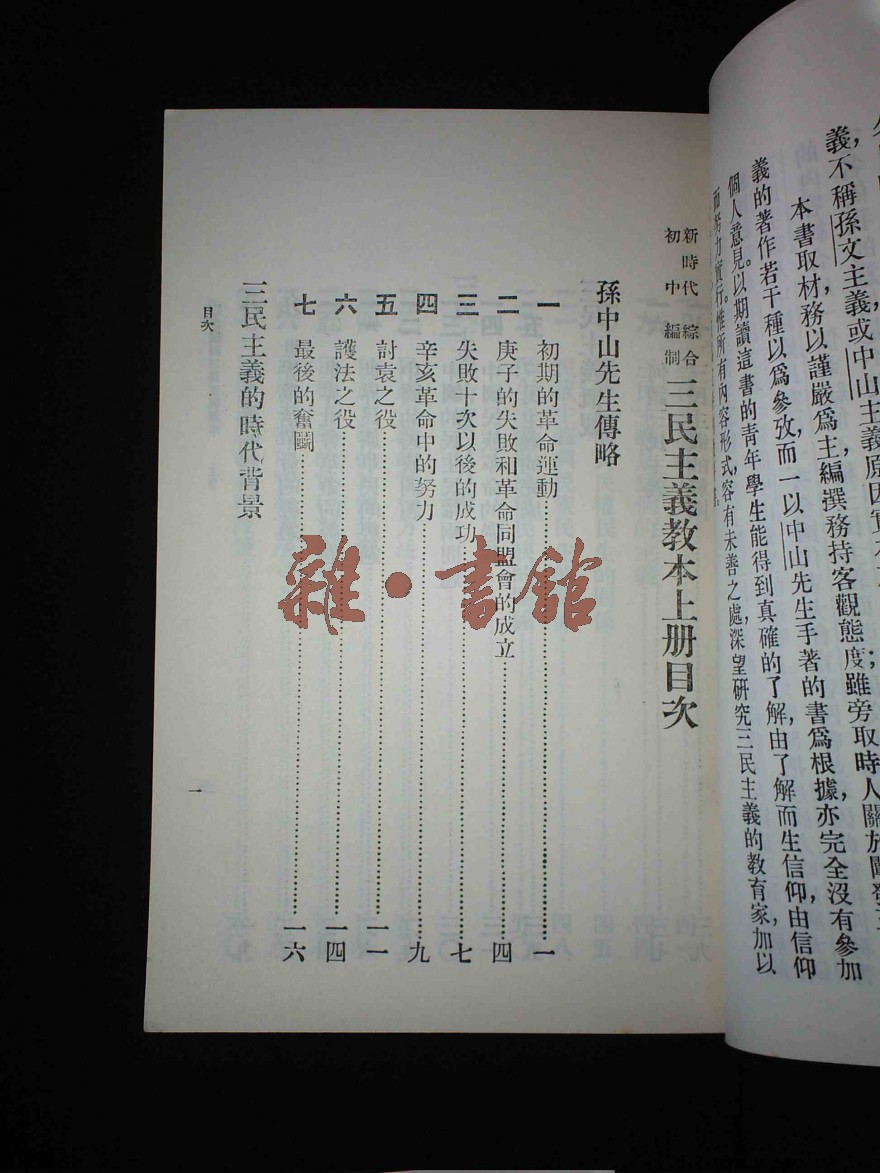 義，不稱孫文主義或中山主義
本書取材務以謹嚴爲主編撰務持客觀態度；雖旁取時人關於
義的著作若干種以爲參攷，而一以中山先生手著的書爲根據，亦完全沒有參加
個人意見。以期讀這書的青年學生能得到真確的了解，由了解而生信仰，由信仰
而努力實行。惟所有內容形式，容有未善之處，深望研究三民主義的教育家，加以
新時代 綜合
初中 編制
三民主義教本上册目次
孫中山先生傳略
一 初期的革命運動……一
二 庚子的失敗和革命同盟會的成立……四
三 失敗十次以後的成功……七
四 辛亥革命中的努力……九
五 討袁之役……一一
六 護法之役……一四
七 最後的奮鬭……一六
三民主義的時代背景
目次
一
雜·書舘